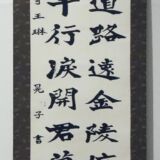 道路遠金陵信
千行淚開君萬
寄王琳 晃子書